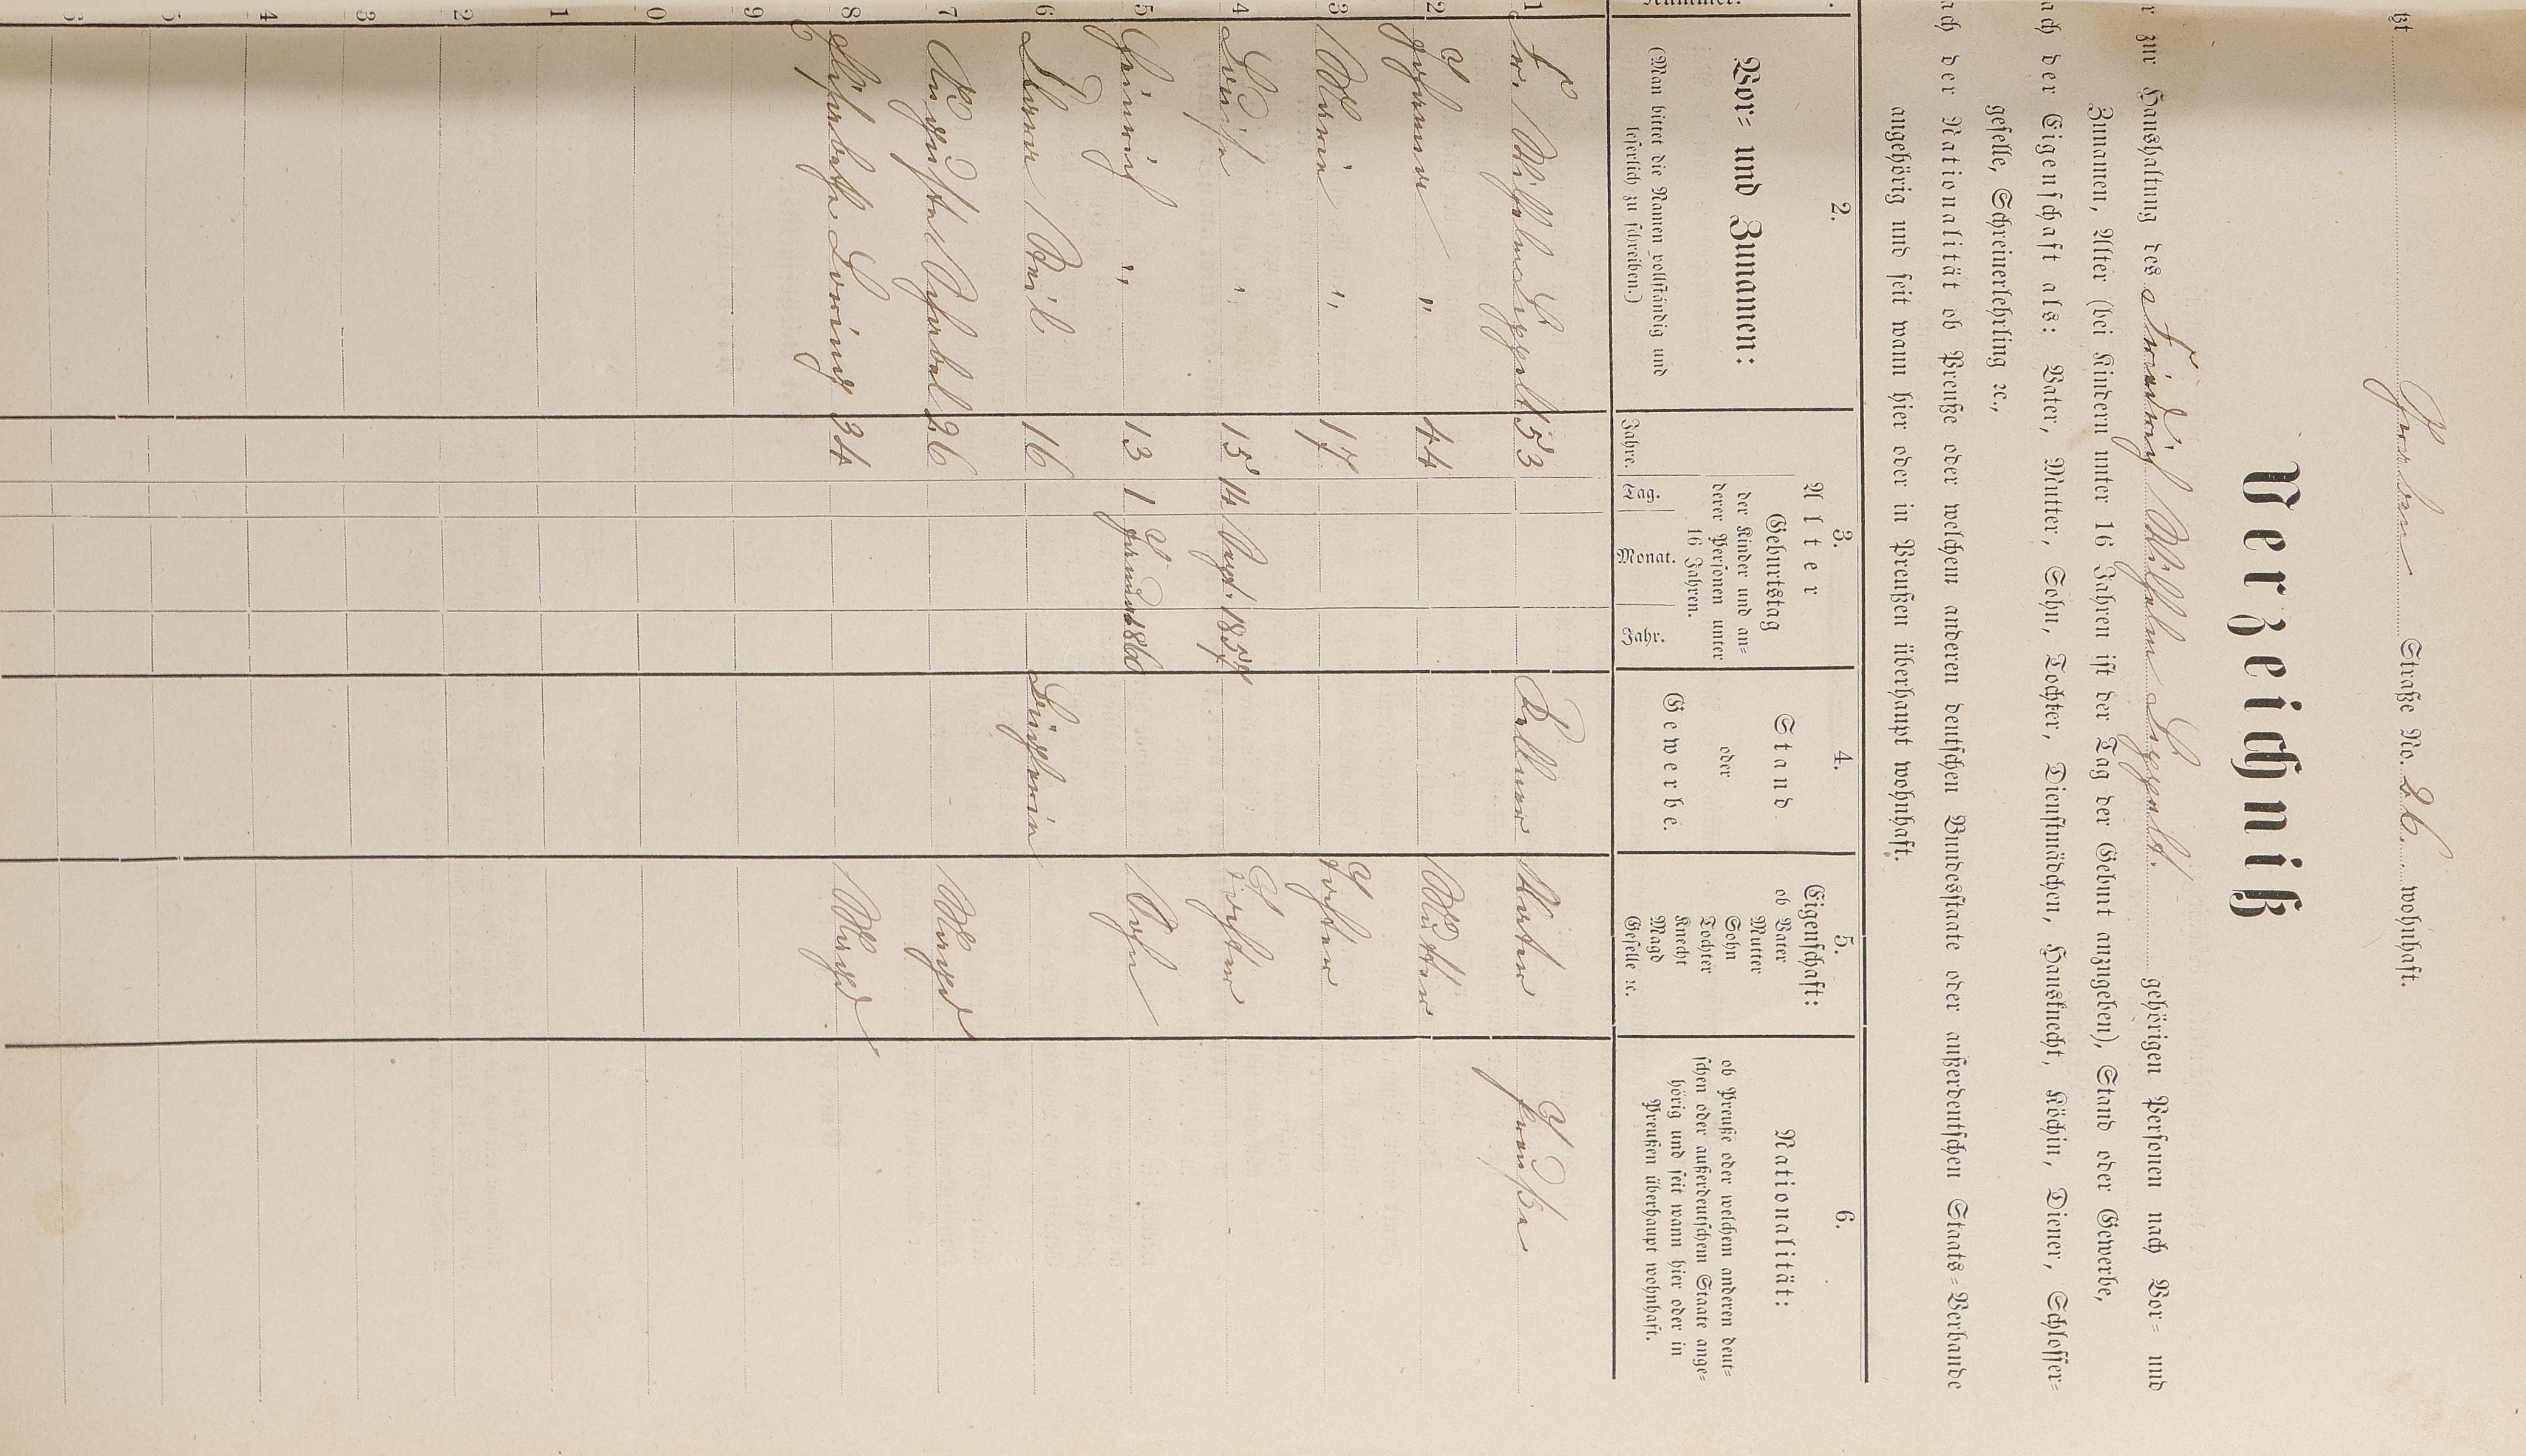 ßt Graben Straße No. 26. wohnhaft.
Verzeichniß
r zur Haushaltung des Friedrich Wilhelm Lippelt. gehörigen Personen nach Vor= und
Zunamen, Alter (bei Kindern unter 16 Jahren ist der Tag der Geburt anzugeben), Stand oder Gewerbe,
ach der Eigenschaft als: Vater, Mutter, Sohn, Tochter, Dienstmädchen, Hausknecht, Köchin, Diener, Schlosser=
geselle, Schreinerlehrling ꝛc.,
ach der Nationalität ob Preuße oder welchem anderen deutschen Bundesstaate oder außerdeutschen Staats=Verbande
angehörig und seit wann hier oder in Preußen überhaupt wohnhaft.
2. 3. 4. 5. 6.
Vor= und Zunamen:
(Man bittet die Namen vollständig und
leserlich zu schreiben.)
Alter
Jahre.
Geburtstag
der Kinder und an=
derer Personen unter
16 Jahren.
Tag. Monat. Jahr.
Stand
oder
Gewerbe.
Eigenschaft:
ob Vater
Mutter
Sohn
Tochter
Knecht
Magd
Geselle ꝛc.
Nationalität:
ob Preuße oder welchem anderen deut=
schen oder außerdeutschem Staate ange=
hörig und seit wann hier oder in
Preußen überhaupt wohnhaft.
1 Fr. Wilhelm Lippelt 53 Kellner Vater Preuße
2 Johanne " 44 Mutter
3 Marie " 17 Tochter
4 Louise " 15 14 Sept. 1857 Tochter
5 Heinrich " 13 1 Januar 1860 Sohn
6 16
7 Auguste 26 Magd
8 Elisabethe 34 Magd
9
0
1
2
3
4
5
6